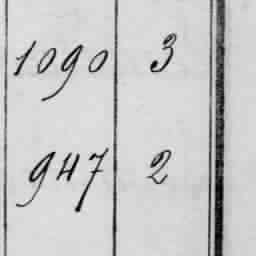 1090 3
947 2